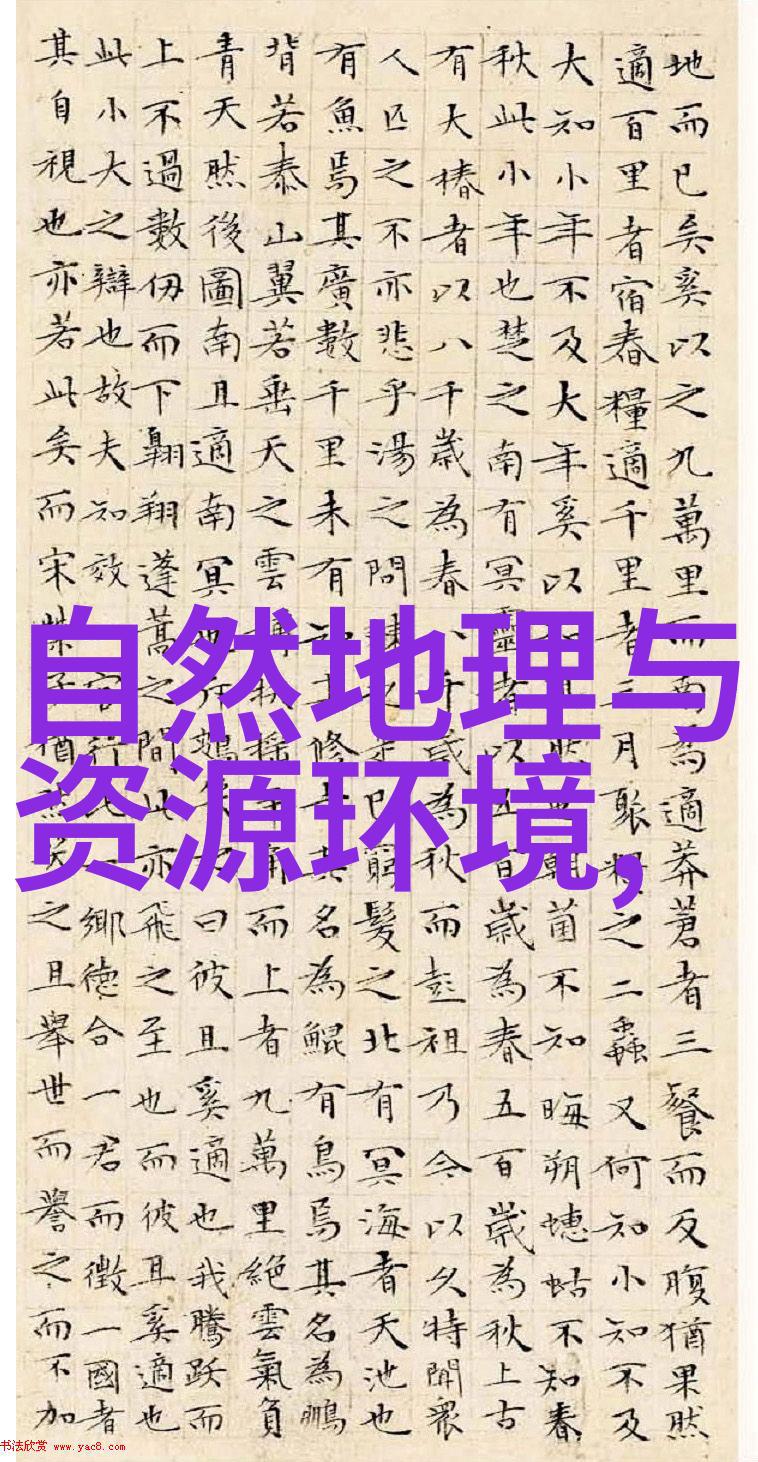 自然地理与
资源环境,
地而已矣奚以之九萬里而南為適莽蒼者三餐而反腹猶果然
適百里者宿舂糧適千里者三月聚糧之二蟲又何知小知不及
大知小年不及大年奚以然朝菌不知晦朔蟪蛄不知春
秋此小年也楚之南有冥靈者以五百歲為春五百歲為秋上古
有大椿者以八千歲為春八千歲為秋而彭祖乃今以久特聞衆
人匹之不亦悲乎湯之問棘之是已窮髮之北有冥海者天池也
有魚焉其廣數千里未有知其修者其名為鯤有鳥焉其名為鵬
背若泰山翼若垂天之雲摶扶搖羊角而上者九萬里絕雲氣負
青天然後圖南且適南冥也斥鴳笑之曰彼且奚適也我騰躍而
上不過數仞而下翱翔蓬蒿之間此亦飛之至也而彼且奚適也
此小大之辯也故夫知效官行比一鄉德合一君而徵一國者
其自視也亦若此矣而宋榮子猶然笑之且舉世而譽之而不加
书法欣赏 www.yac8.com